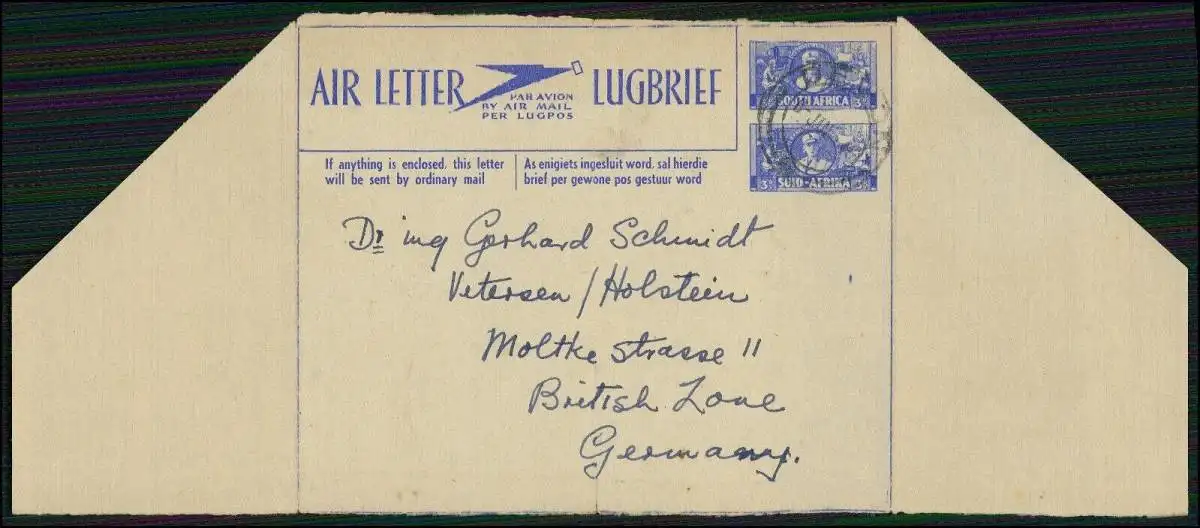 AIR LETTER LUGBRIEF
PAR AVION
BY AIR MAIL
PER LUGPOS
If anything is enclosed, this letter
will be sent by ordinary mail
As enigiets ingesluit word, sal hierdie
brief per gewone pos gestuur word
SOUTH AFRICA 3D
3D SUID-AFRIKA 3D
Dr ing Gerhard Schmidt
Vetersen / Holstein
Moltke strasse 11
British Zone
Germany.